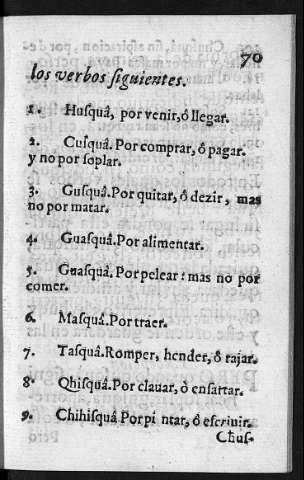 70
los verbos siguientes.
1. Husquâ, por venir, ó llegar.
2. Cusquâ. Por comprar, ô pagar.
y no por soplar.
3. Gusquâ. Por quitar, ô dezir, mas
no por matar.
4. Guasquâ. Por alimentar.
5. Guasquâ. Por pelear: mas no por
comer.
6. Masquâ. Por traer.
7. Tasquâ. Romper, hender, ô rajar.
8. Qhisquâ. Por clauar, ò ensartar.
9. Chihisquâ Por pintar, ó escriuir.
Chus-